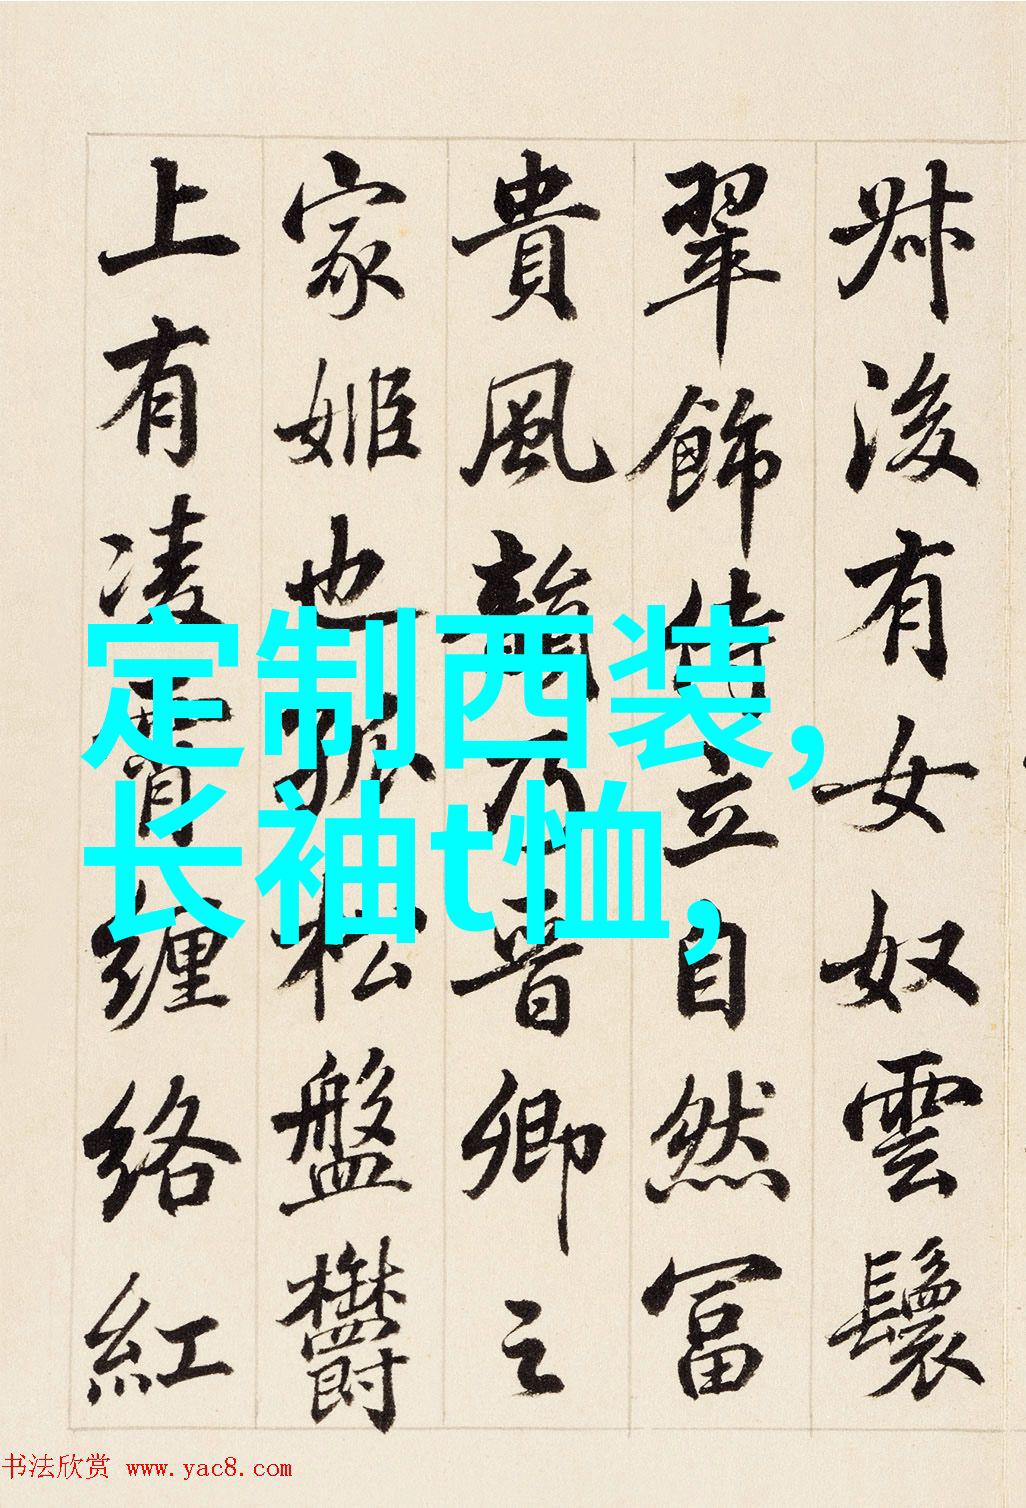 牀後有女奴雲鬟
翠飾侍立自然富
貴風韻乃晉卿之
家姬也孤松盤欝
上有凌霄纏絡紅
定制西装,
长袖t恤,
书法欣赏 www.yac8.com